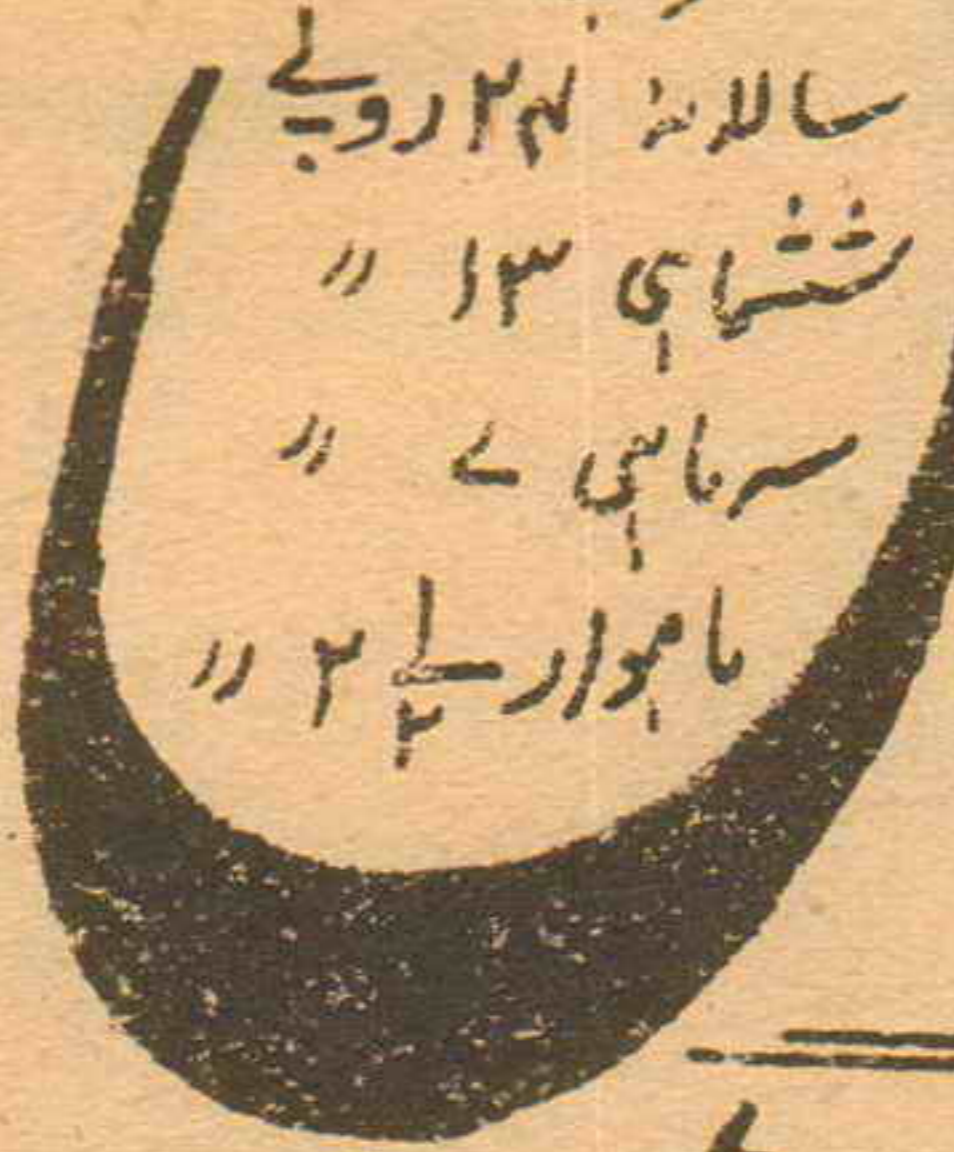 سالانہ ۲۴ روپے
ششماہی ۱۳ 〃
سہ ماہی ۷ 〃
ماہوار ۲½ 〃